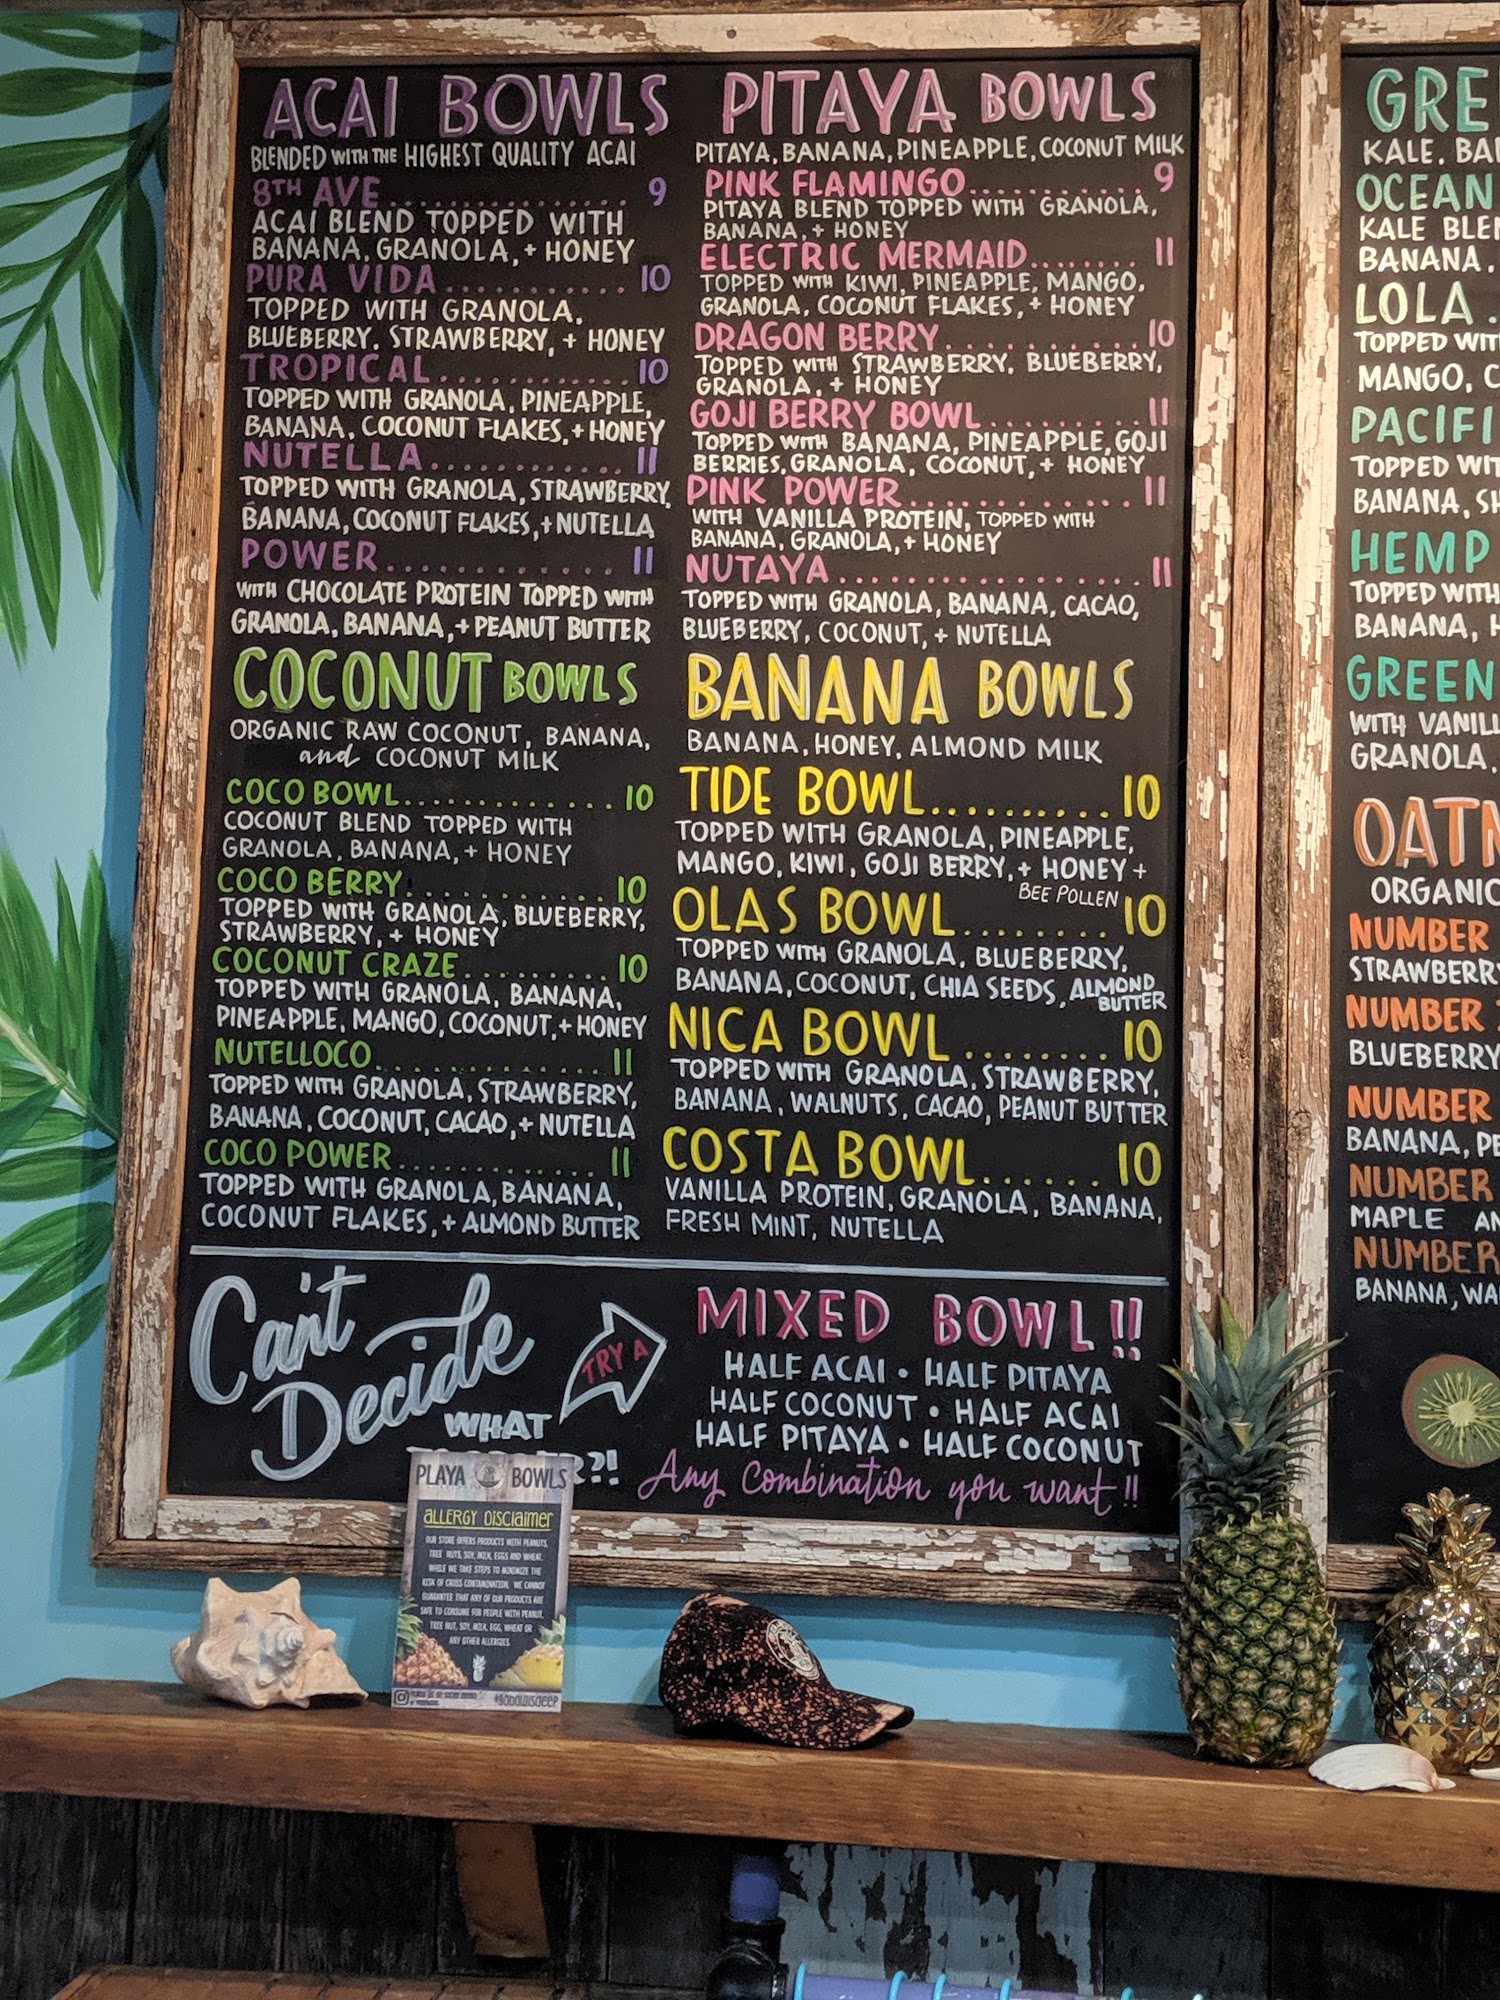 ACAI BOWLS
BLENDED WITH THE HIGHEST QUALITY ACAI
8TH AVE .............. 9
ACAI BLEND TOPPED WITH
BANANA, GRANOLA, + HONEY
PURA VIDA ............ 10
TOPPED WITH GRANOLA,
BLUEBERRY, STRAWBERRY, + HONEY
TROPICAL ............ 10
TOPPED WITH GRANOLA, PINEAPPLE,
BANANA, COCONUT FLAKES, + HONEY
NUTELLA ............ 11
TOPPED WITH GRANOLA, STRAWBERRY,
BANANA, COCONUT FLAKES, + NUTELLA
POWER ............ 11
WITH CHOCOLATE PROTEIN TOPPED WITH
GRANOLA, BANANA, + PEANUT BUTTER
COCONUT BOWLS
ORGANIC RAW COCONUT, BANANA,
and COCONUT MILK
COCO BOWL ............. 10
COCONUT BLEND TOPPED WITH
GRANOLA, BANANA, + HONEY
COCO BERRY ............ 10
TOPPED WITH GRANOLA, BLUEBERRY,
STRAWBERRY, + HONEY
COCONUT CRAZE ......... 10
TOPPED WITH GRANOLA, BANANA,
PINEAPPLE, MANGO, COCONUT, + HONEY
NUTELLOCO ............. 11
TOPPED WITH GRANOLA, STRAWBERRY,
BANANA, COCONUT, CACAO, + NUTELLA
COCO POWER ............. 11
TOPPED WITH GRANOLA, BANANA,
COCONUT FLAKES, + ALMOND BUTTER
PITAYA BOWLS
PITAYA, BANANA, PINEAPPLE, COCONUT MILK
PINK FLAMINGO ........... 9
PITAYA BLEND TOPPED WITH GRANOLA,
BANANA, + HONEY
ELECTRIC MERMAID ....... 11
TOPPED WITH KIWI, PINEAPPLE, MANGO,
GRANOLA, COCONUT FLAKES, + HONEY
DRAGON BERRY ........... 10
TOPPED WITH STRAWBERRY, BLUEBERRY,
GRANOLA, + HONEY
GOJI BERRY BOWL ......... 11
TOPPED WITH BANANA, PINEAPPLE, GOJI
BERRIES, GRANOLA, COCONUT, + HONEY
PINK POWER ............ 11
WITH VANILLA PROTEIN, TOPPED WITH
BANANA, GRANOLA, + HONEY
NUTAYA .................. 11
TOPPED WITH GRANOLA, BANANA, CACAO,
BLUEBERRY, COCONUT, + NUTELLA
BANANA BOWLS
BANANA, HONEY, ALMOND MILK
TIDE BOWL .......... 10
TOPPED WITH GRANOLA, PINEAPPLE,
MANGO, KIWI, GOJI BERRY, + HONEY +
BEE POLLEN
OLAS BOWL ........ 10
TOPPED WITH GRANOLA, BLUEBERRY,
BANANA, COCONUT, CHIA SEEDS, ALMOND
BUTTER
NICA BOWL ........ 10
TOPPED WITH GRANOLA, STRAWBERRY,
BANANA, WALNUTS, CACAO, PEANUT BUTTER
COSTA BOWL ...... 10
VANILLA PROTEIN, GRANOLA, BANANA,
FRESH MINT, NUTELLA
Can't
Decide
WHAT
R?!
TRY A
MIXED BOWL!!
HALF ACAI • HALF PITAYA
HALF COCONUT • HALF ACAI
HALF PITAYA • HALF COCONUT
Any combination you want!!
GRE
KALE, BA
OCEAN
KALE BLE
BANANA,
LOLA .
TOPPED WIT
MANGO, C
PACIFI
TOPPED WIT
BANANA, SH
HEMP
TOPPED WITH
BANANA, H
GREEN
WITH VANILL
GRANOLA,
OATM
ORGANIC
NUMBER
STRAWBERRY
NUMBER
BLUEBERRY
NUMBER
BANANA, PE
NUMBER
MAPLE AN
NUMBER
BANANA, WA
PLAYA BOWLS
ALLERGY DISCLAIMER
OUR STORE OFFERS PRODUCTS WITH PEANUTS,
TREE NUTS, SOY, MILK, EGGS AND WHEAT.
WHILE WE TAKE STEPS TO MINIMIZE THE
RISK OF CROSS CONTAMINATION, WE CANNOT
GUARANTEE THAT ANY OF OUR PRODUCTS ARE
SAFE TO CONSUME FOR PEOPLE WITH PEANUT,
TREE NUT, SOY, MILK, EGG, WHEAT OR
ANY OTHER ALLERGIES.
#GOBOWLSDEEP